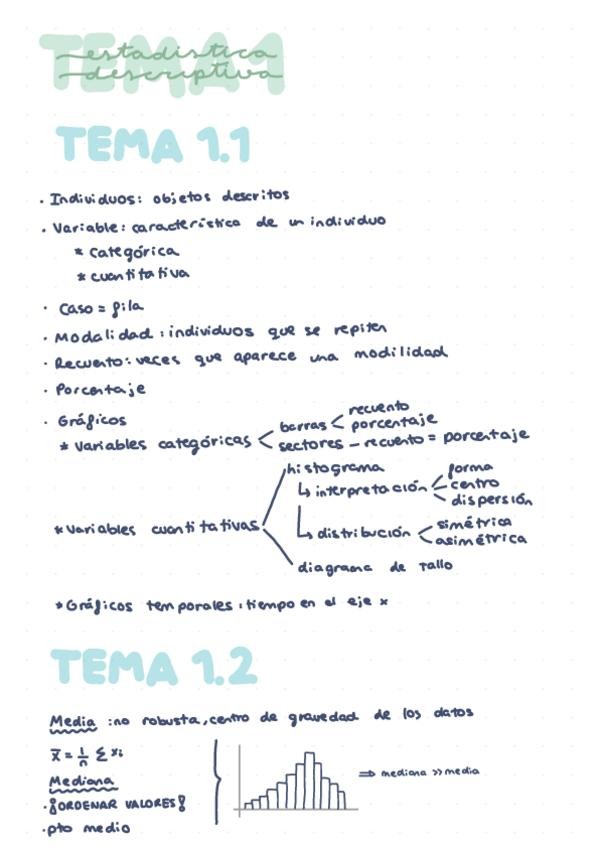 TEMA 1
estadística
descriptiva
TEMA 1.1
· Individuos: objetos descritos
· Variable: característica de un individuo
* categórica
* cuantitativa
· Caso = fila
· Modalidad: individuos que se repiten
· Recuento: veces que aparece una modilidad
· Porcentaje
· Gráficos
* Variables categóricas < barras < recuento
porcentaje
sectores - recuento = porcentaje
* Variables cuantitativas
histograma
↳ interpretación < forma
centro
dispersión
↳ distribución < simétrica
asimétrica
diagrama de tallo
* Gráficos temporales: tiempo en el eje x
TEMA 1.2
Media: no robusta, centro de gravedad de los datos
x̄ = 1/n Σ xi
Mediana
· ¡ORDENAR VALORES!
· pto medio
⇒ mediana >> media